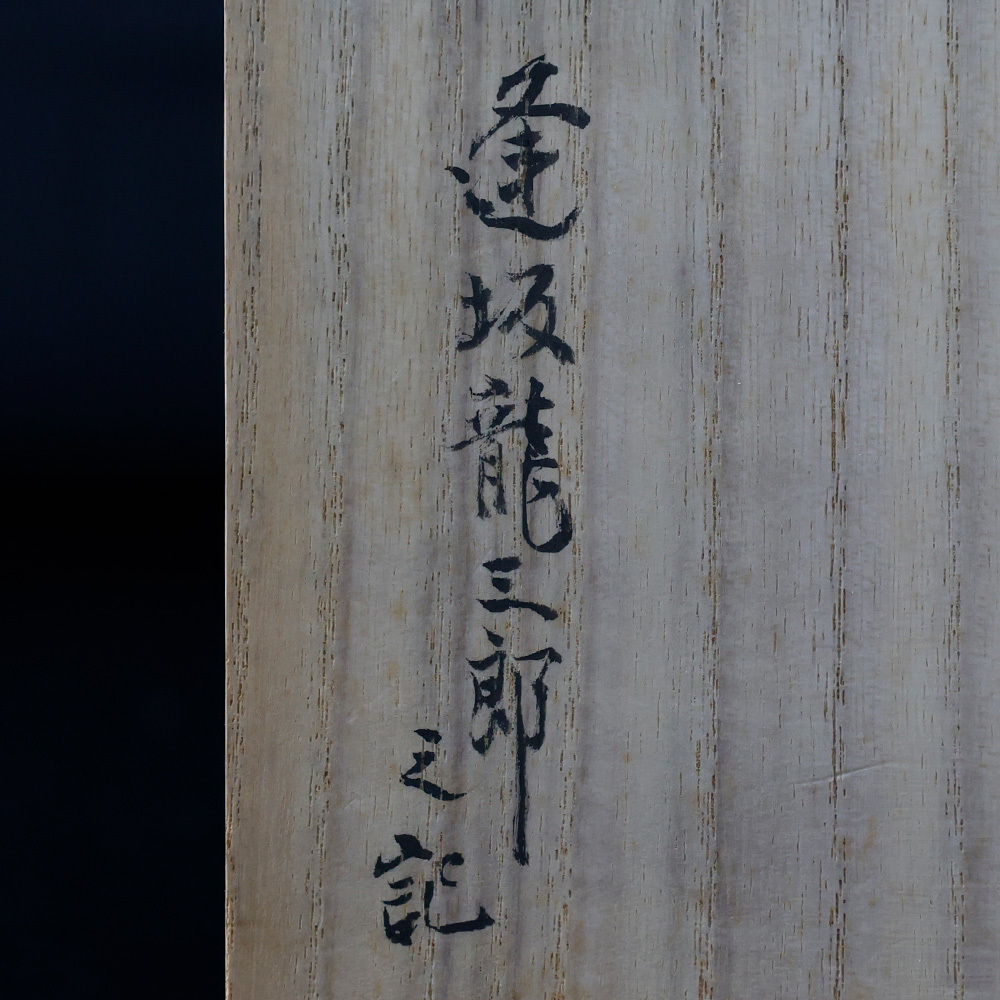 逢坂龍三郎
之記